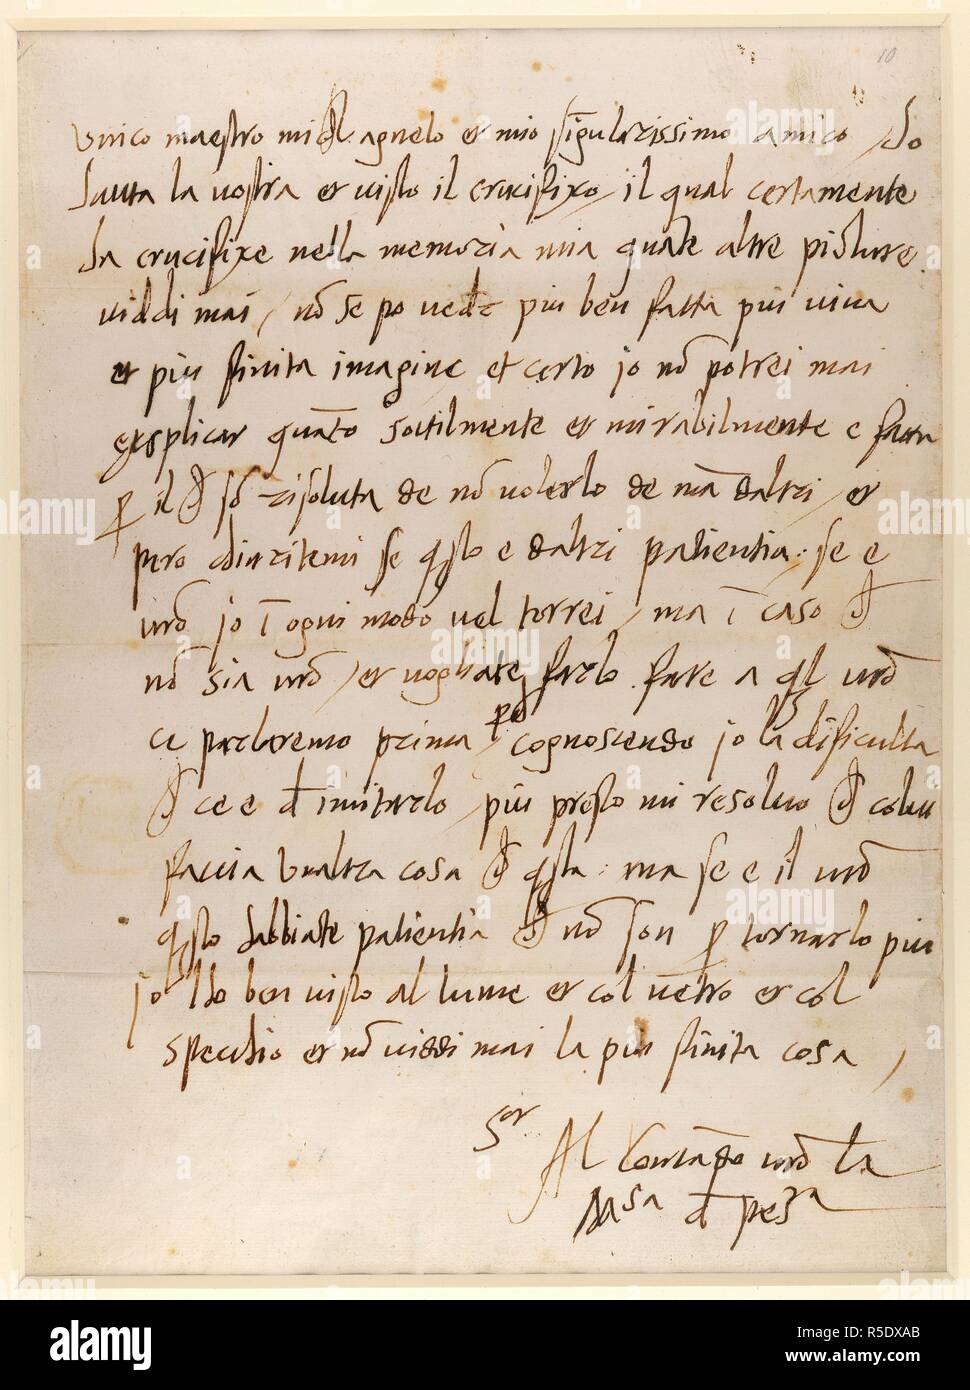 10
Unico maestro Michelagnelo et mio singularissimo amico / ho
hauta la vostra et visto il crucifixo / il qual certamente
ha crucifixe nella memoria mia quate altre picture
viddi mai / nō se po veder più ben fatta più viva
et più finita imagine et certo io nō potrei mai
explicar quāto sottilmente et mirabilmente e fatta
p il ch sō risoluta de nō volerlo de mā daltri / et
pero chiaritemi se qsto e daltri patientia. se e
vrō io ī ogni modo vel torrei / ma ī caso ch
nō sia vrō / et vogliate farlo fare a ql vrō
ce parleremo prima / pche cognoscendo io la dificulta
ch ce e d imitarlo più presto mi resolvo ch colui
faccia unaltra cosa ch qsta: ma se e il vrō
qsto habbiate patientia ch nō son p tornarlo più
io lho ben visto al lume et col vetro et col
specchio et nō viddi mai la più finita cosa /
Al comādo vrō la
Mar.sa d pesra
alamy
Image ID: R5DXAB
www.alamy.com